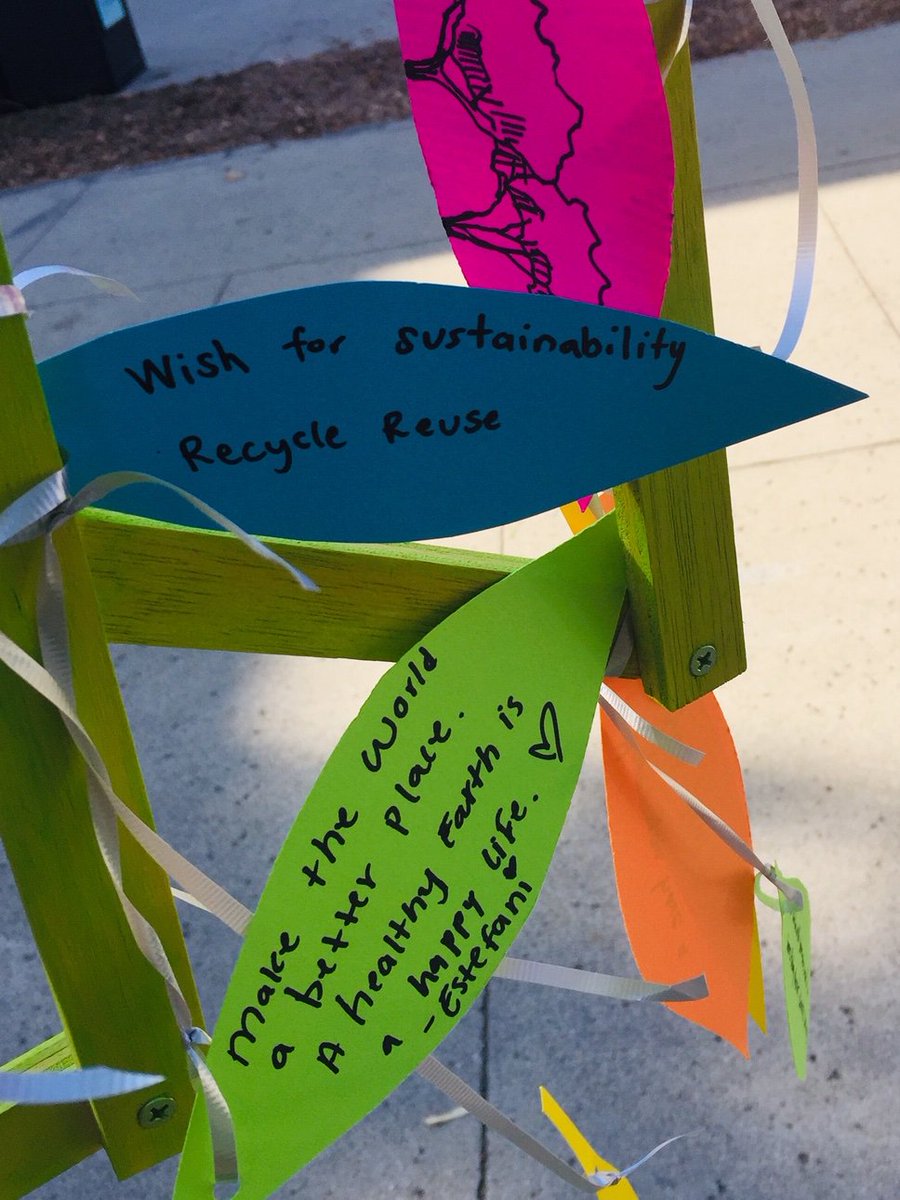 Wish for sustainability
Recycle Reuse
Make the World
a better place.
A healthy Earth is
a happy Life. ♡
-Estefani